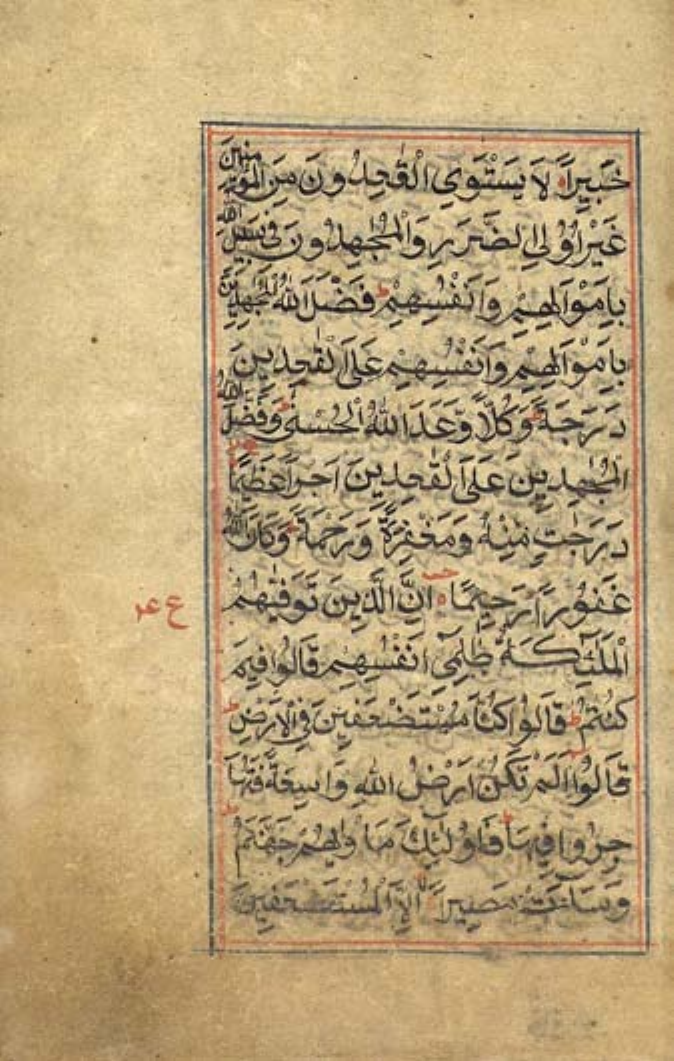 خَبِيرًا لَا يَسْتَوِى الْقٰعِدُونَ مِنَ الْمُؤْمِنِينَ
غَيْرُ اُولِى الضَّرَرِ وَالْمُجٰهِدُونَ فِى سَبِيلِ اللّٰهِ
بِاَمْوَالِهِمْ وَاَنْفُسِهِمْ ط فَضَّلَ اللّٰهُ الْمُجٰهِدِينَ
بِاَمْوَالِهِمْ وَاَنْفُسِهِمْ عَلَى الْقٰعِدِينَ
دَرَجَةً ط وَكُلًّا وَّعَدَ اللّٰهُ الْحُسْنٰى ط وَفَضَّلَ اللّٰهُ
الْمُجٰهِدِينَ عَلَى الْقٰعِدِينَ اَجْرًا عَظِيمًا
دَرَجٰتٍ مِّنْهُ وَمَغْفِرَةً وَرَحْمَةً ط وَكَانَ اللّٰهُ
غَفُورًا رَحِيمًا اِنَّ الَّذِينَ تَوَفّٰيهُمُ
ع
الْمَلٰٓئِكَةُ ظَالِمِىٓ اَنْفُسِهِمْ قَالُوا فِيمَ
كُنْتُمْ ط قَالُوا كُنَّا مُسْتَضْعَفِينَ فِى الْاَرْضِ ط
قَالُوا اَلَمْ تَكُنْ اَرْضُ اللّٰهِ وَاسِعَةً فَتُهَا
جِرُوا فِيهَا ط فَاُولٰٓئِكَ مَاْوٰيهُمْ جَهَنَّمُ ط
وَسَآءَتْ مَصِيرًا اِلَّا الْمُسْتَضْعَفِينَ